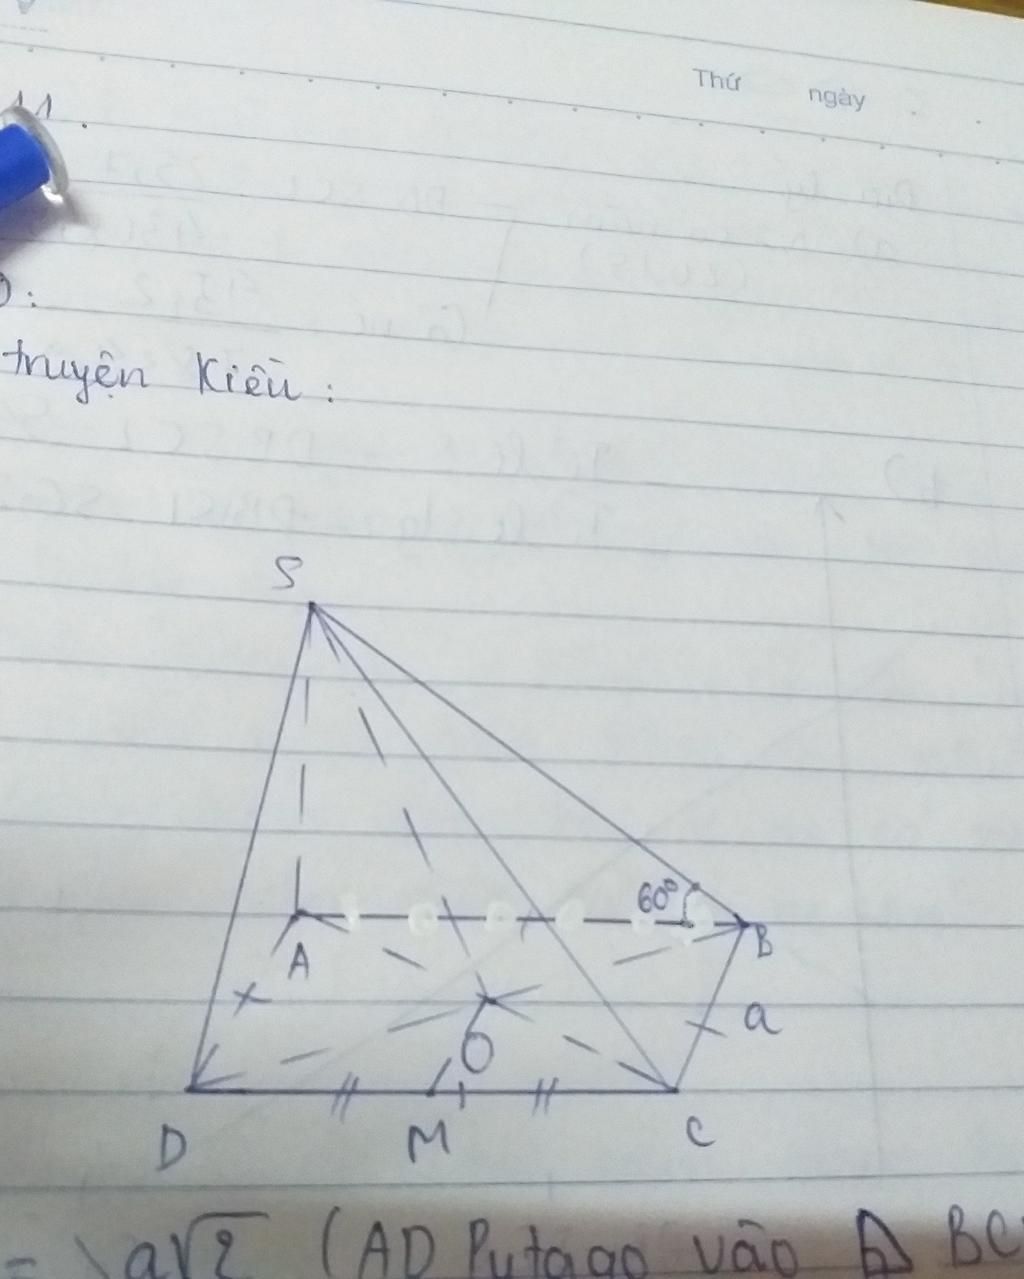 Thứ ngày
truyện Kiều :
S
60°
A
B
a
O
D
M
C
a√2 (AD Putago vào